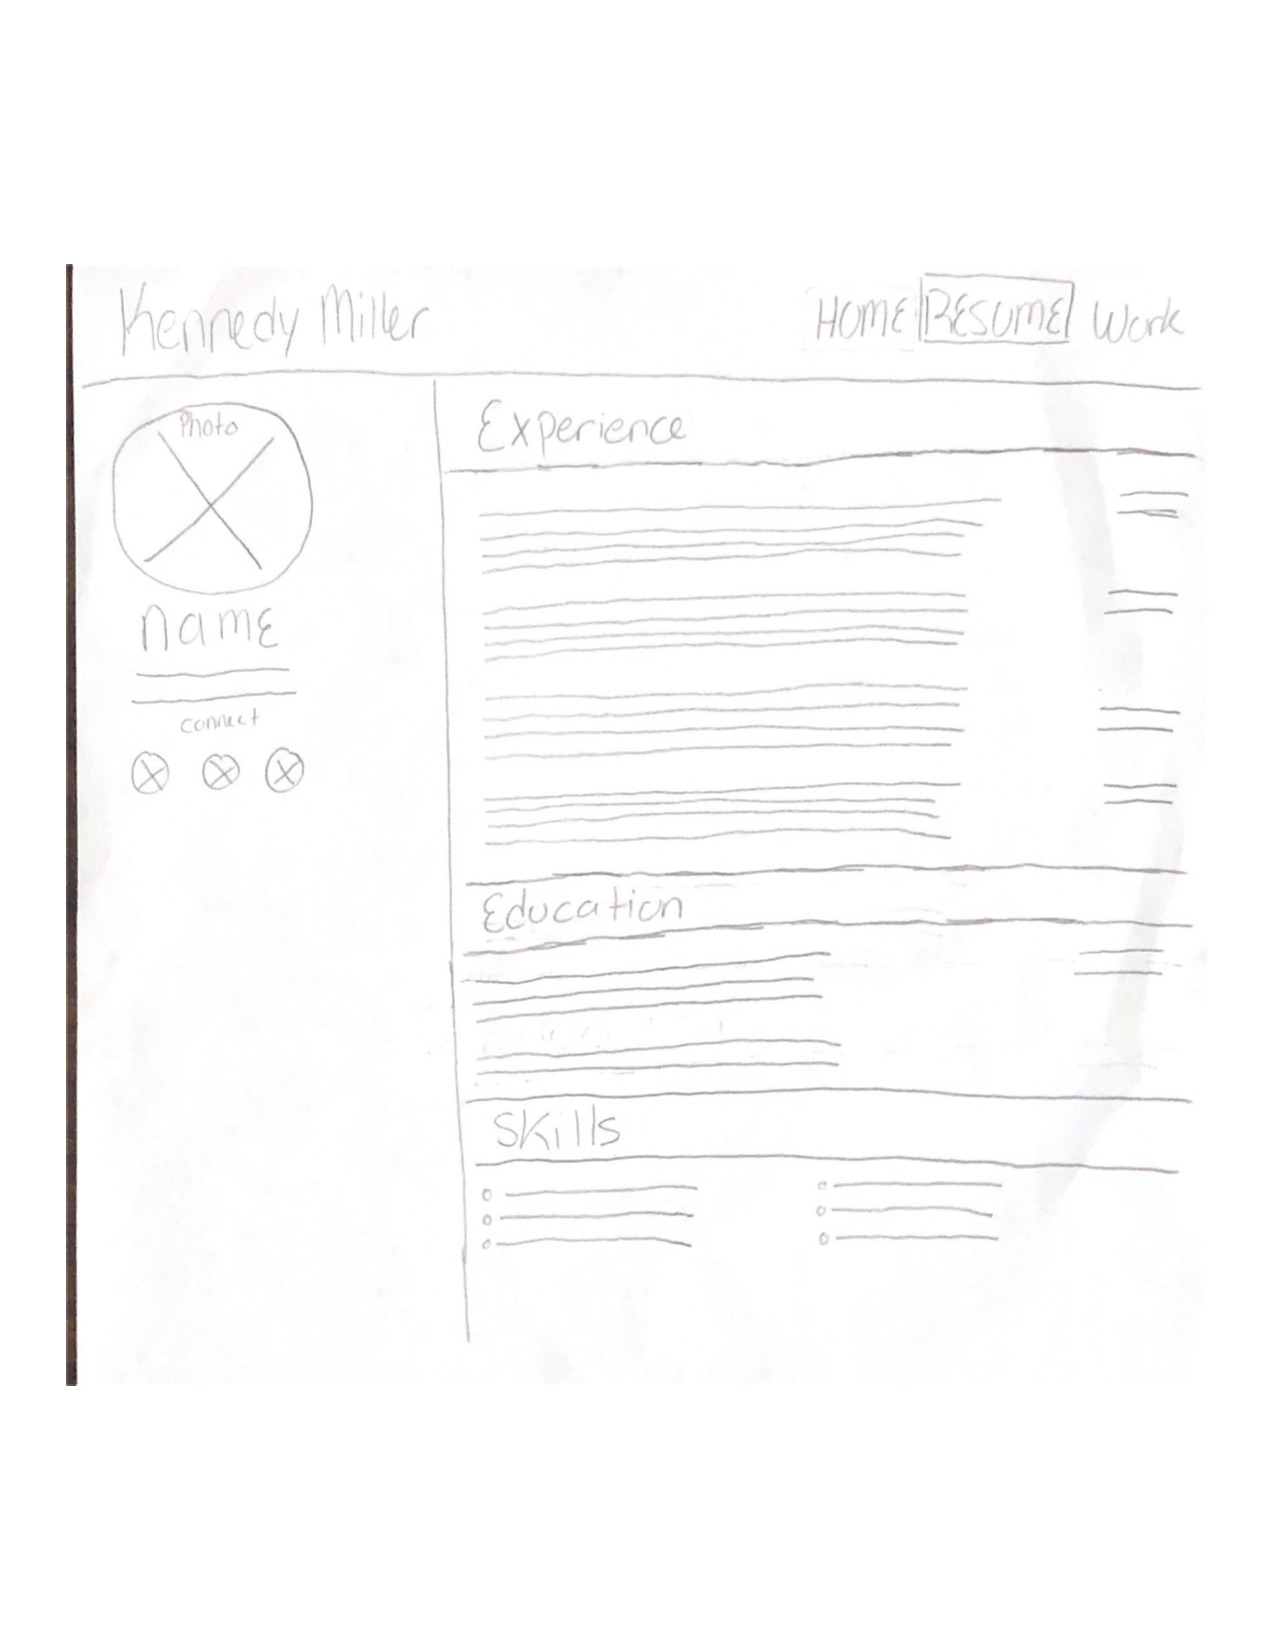 Kennedy Miller
HOME RESUME Work
Photo
name
connect
Experience
Education
Skills